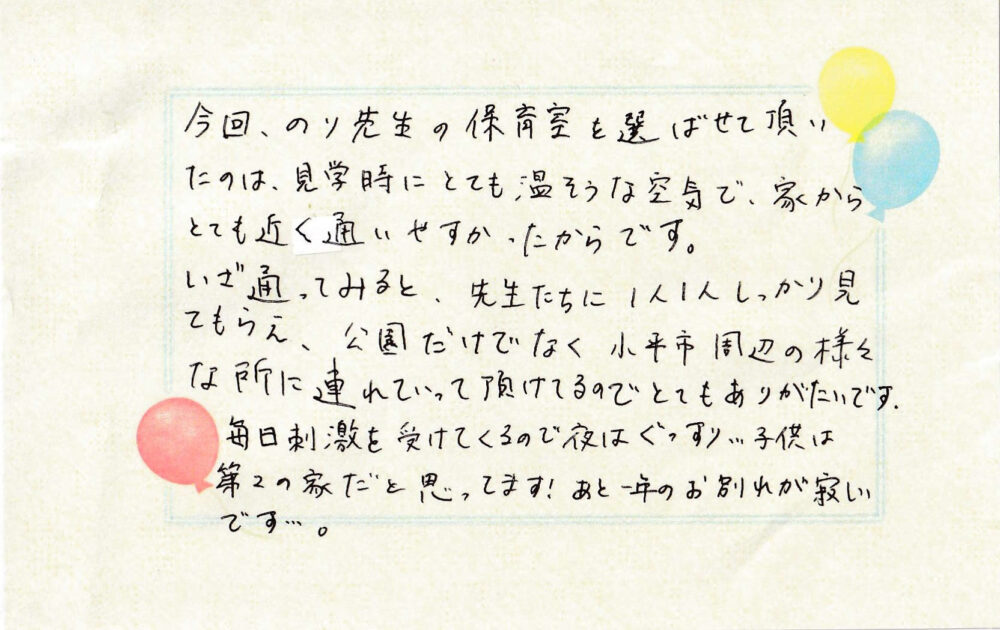 今回、のり先生の保育室を選ばせて頂い
たのは、見学時にとても温そうな空気で、家から
とても近く通いやすかったからです。
いざ通ってみると、先生たちに1人1人しっかり見
てもらえ、公園だけでなく小平市周辺の様々
な所に連れていって頂けてるのでとてもありがたいです.
毎日刺激を受けてくるので夜はぐっすり…子供は
第2の家だと思ってます!あと一年のお別れが寂しい
です…。